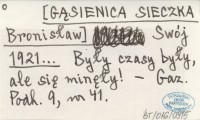 [GĄSIENICA SIECZKA
Bronisław] Swój
1921... Były czasy były,
ale się minęły! – Gaz.
Podh. 9, nr 41.